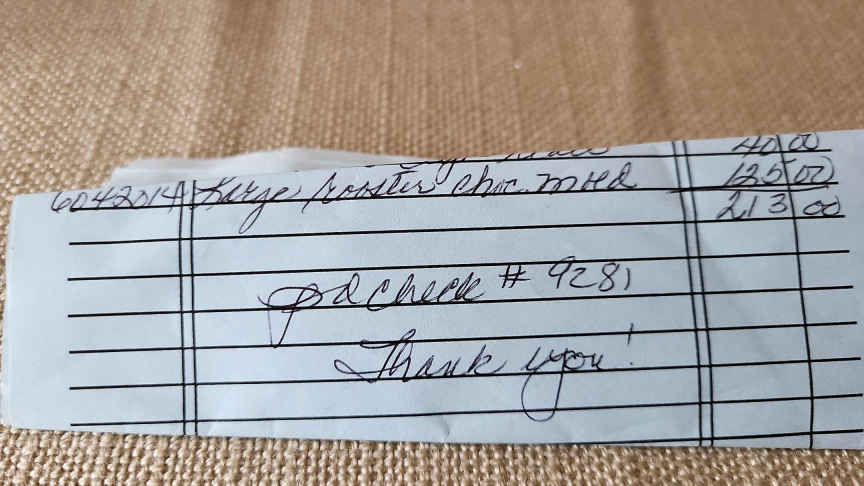 40 00
6042014A Large rooster choc. mold 125 00
213 00
pd check # 9281
Thank you!